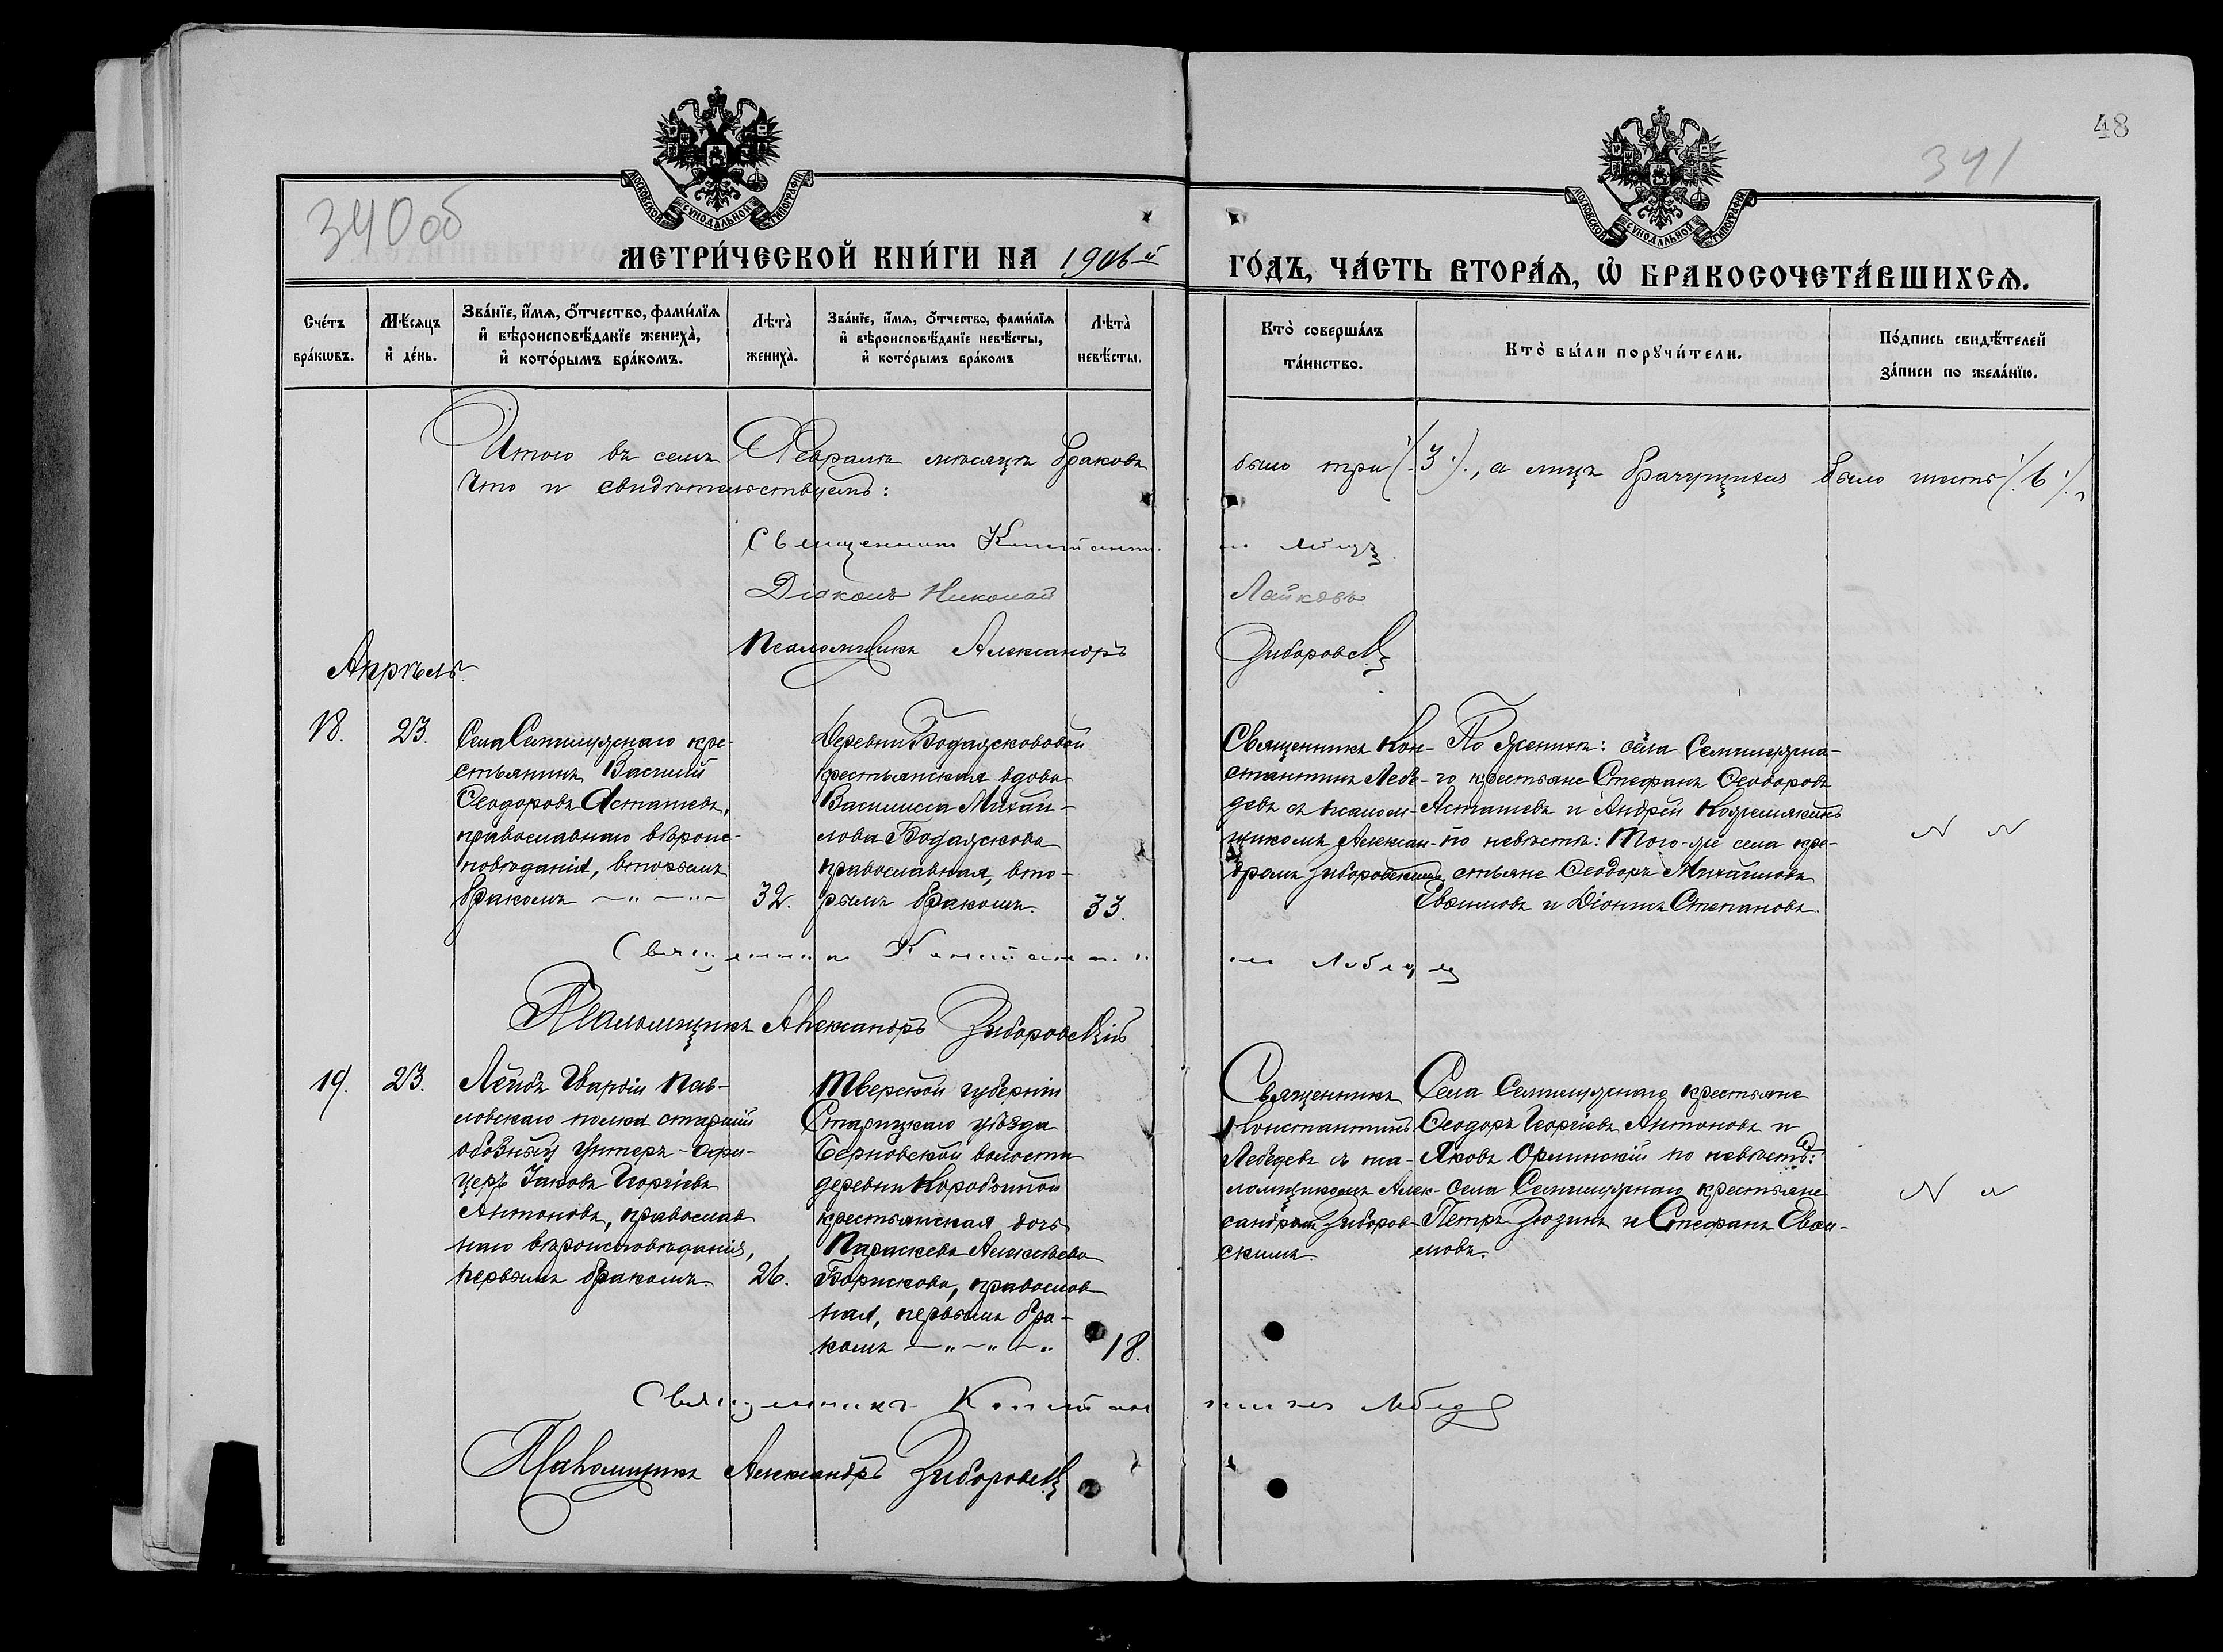 48
341
340 об
МОСКОВСКОЙ СУНОДАЛЬНОЙ ТИПОГРАФІИ
МОСКОВСКОЙ СУНОДАЛЬНОЙ ТИПОГРАФІИ
МЕТРИ́ЧЕСКОЙ КНИ́ГИ НА 1906-й
ГО́ДЪ, ЧА́СТЬ ВТОРА́Ѧ, Ѡ҆ БРАКОСОЧЕТА́ВШИХСѦ.
Сче́тъ бра́кѡвъ.
Мѣ́сѧцъ и҆ де́нь.
Зва́нїе, и҆́мѧ, ѻ҆́тчество, фами́лїѧ
и҆ вѣроисповѣ́данїе жениха̀,
и҆ кото́рымъ бра́комъ.
Лѣта̀ жениха̀.
Зва́нїе, и҆́мѧ, ѻ҆́тчество, фами́лїѧ
и҆ вѣроисповѣ́данїе невѣ́сты,
и҆ кото́рымъ бра́комъ
Лѣта̀ невѣ́сты.
Кто̀ соверша́лъ та́инство.
Кто̀ бы́ли порꙋчи́тели.
По́дпись свидѣ́телей
за́писи по жела́нїю.
Итого въ семъ Февралѣ мѣсяцѣ браковъ было три (3), а лицъ брачущихся было шесть (6),
Что и свидѣтельствуемъ:
Священникъ Константинъ Лебедевъ
Діаконъ Николай Лайковъ
Псаломщикъ Александръ Зиборовскій
Апрѣль.
18. 23.
Села Семилужнаго кре-
стьянинъ Василій
Ѳеодоровъ Асташевъ,
православнаго вѣроис-
повѣданія, вторымъ
бракомъ 32.
Деревни Бодажсковой
крестьянская вдова
Василисса Михаи-
лова Бодажскова
православная, вто-
рымъ бракомъ. 33.
Священникъ Кон-
стантинъ Лебе-
девъ съ псалом-
щикомъ Алексан-
дромъ Зиборовскимъ
По женихѣ: села Семилужна-
го крестьяне Стефанъ Ѳеодоровъ
Асташевъ и Андрей Кожемякинъ
по невѣстѣ: того-же села кре-
стьяне Ѳеодоръ Михаиловъ
Евѳимовъ и Діонисъ Степановъ.
N N
Священникъ Константинъ Лебедевъ
Псаломщикъ Александръ Зиборовскій
19. 23.
Лейбъ Гвардіи Пав-
ловскаго полка старшій
обозный унтеръ-офи-
церъ Іаковъ Георгіевъ
Антоновъ, православ
наго вѣроисповѣданія,
первымъ бракомъ. 26.
Тверской губерніи
Старицкаго уѣзда
Берновской волости
деревни Коробьиной
крестьянская дочь
Параскева Алексѣева
Борискова, православ
ная, первымъ бра-
комъ 18.
Священникъ
Константинъ
Лебедевъ съ пса-
ломщикомъ Алек-
сандромъ Зиборов-
скимъ.
Села Семилужнаго крестьяне
Ѳеодоръ Георгіевъ Антоновъ и
Яковъ Орлинскій по невѣстѣ:
села Семилужнаго крестьяне
Петръ Зюзинъ и Стефанъ Евѳи-
мовъ.
N N
Священникъ Константинъ Лебедевъ
Псаломщикъ Александръ Зиборовскій